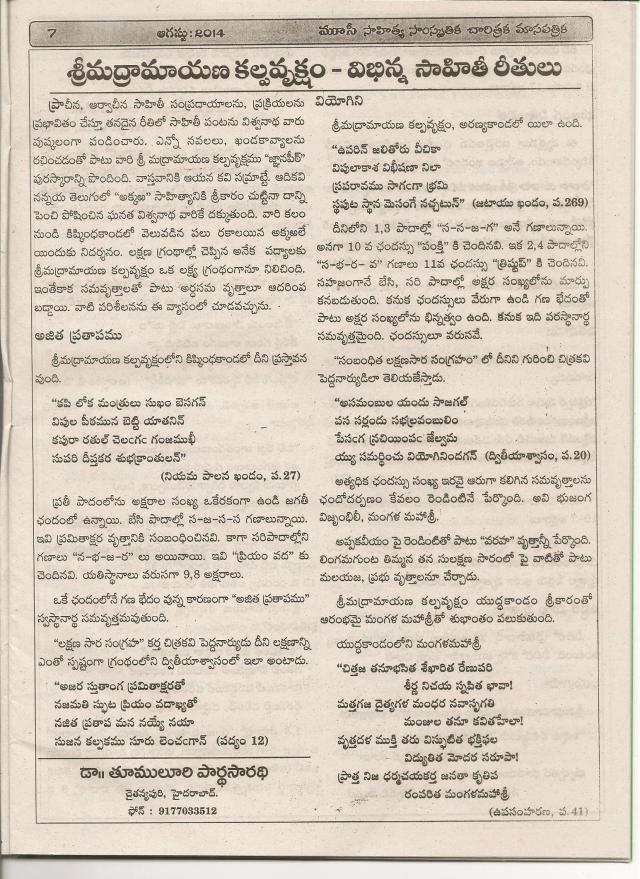 7
ఆగస్టు:2014
మూసీ సాహిత్య సాంస్కృతిక చారిత్రక మాసపత్రిక
శ్రీమద్రామాయణ కల్పవృక్షం - విభిన్న సాహితీ రీతులు
ప్రాచీన, ఆర్వాచీన సాహితీ సంప్రదాయాలను, ప్రక్రియలను
ప్రభావితం చేస్తూ తనదైన రీతిలో సాహితీ పంటను విశ్వనాథ వారు
పుష్కలంగా పండించారు. ఎన్నో నవలలు, ఖండకావ్యాలను
రచించడంతో పాటు వారి శ్రీ మద్రామాయణ కల్పవృక్షము "జ్ఞానపీఠ్"
పురస్కారాన్ని పొందింది. వాస్తవానికి ఆయన కవి సమ్రాట్టే. ఆదికవి
నన్నయ తెలుగులో "అక్కజ" సాహిత్యానికి శ్రీకారం చుట్టినా దాన్ని
పెంచి పోషించిన ఘనత విశ్వనాథ వారికే దక్కుతుంది. వారి కలం
నుండి కిష్కింధకాండలో వెలువడిన పలు రకాలయిన అక్కజలే
యిందుకు నిదర్శనం. లక్షణ గ్రంథాల్లో చెప్పిన అనేక పద్యాలకు
శ్రీమద్రామాయణ కల్పవృక్షం ఒక లక్ష్య గ్రంథంగానూ నిలిచింది.
ఇంతేకాక సమవృత్తాలతో పాటు అర్ధసమ వృత్తాలూ ఆదరింప
బడ్డాయి. వాటి పరిశీలనను ఈ వ్యాసంలో చూడవచ్చును.
అజిత ప్రతాపము
శ్రీమద్రామాయణ కల్పవృక్షంలోని కిష్కింధకాండలో దీని ప్రస్తావన
వుంది.
"కపి లోక మంత్రులు సుఖం బెసగన్
విపుల పీఠమున బెట్టి యాతనిన్
కపురా రతుల్ చెలంగఁ గంజముఖీ
సుపరి దీప్తకర శుభక్రాంతులన్"
(నియమ పాలన ఖండం, ప.27)
ప్రతీ పాదంలోను అక్షరాల సంఖ్య ఒకేరకంగా ఉండి జగతీ
ఛందంలో ఉన్నాయి. బేసి పాదాల్లో స-జ-స-స గణాలున్నాయి.
ఇవి ప్రమితాక్షర వృత్తానికి సంబంధించినవి. కాగా సరిపాదాల్లోని
గణాలు "న-భ-జ-ర" లు అయినాయి. ఇవి "ప్రియం వద" కు
చెందినవి. యతిస్థానాలు వరుసగా 9,8 అక్షరాలు.
ఒకే ఛందంలోనే గణ భేదం వున్న కారణంగా "అజిత ప్రతాపము"
స్వస్థానార్థ సమవృత్తమవుతుంది.
"లక్షణ సార సంగ్రహ" కర్త చిత్రకవి పెద్దనార్యుడు దీని లక్షణాన్ని
ఎంతో స్పష్టంగా గ్రంథంలోని ద్వితీయాశ్వాసంలో ఇలా అంటాడు.
"అజర స్తుతాంగ ప్రమితాక్షరతో
నజమతి స్ఫుట ప్రియం వదాఖ్యతో
నజిత ప్రతాప మన నయ్యే నయా
సుజన కల్పకము సూరు లెంచఁగాన్ (పద్యం 12)
డా॥ తూములూరి పార్థసారథి
చైతన్యపురి, హైదరాబాద్.
ఫోన్ : 9177033512
వియోగిని
శ్రీమద్రామాయణ కల్పవృక్షం, అరణ్యకాండలో యిలా ఉంది.
"ఉపరిన్ జలితోరు వీచికా
విపులాకాశ విభీషణా నిలా
స్రపరావము సాగఁగా భ్రమి
స్థపుట స్థాన మెసంగే నచ్చటన్" (జటాయు ఖండం, ప.269)
దీనిలోని 1,3 పాదాల్లో "స-స-జ-గ" అనే గణాలున్నాయి.
అనగా 10 వ ఛందస్సు "పంక్తి" కి చెందినవి. ఇక 2,4 పాదాల్లోని
"స-భ-ర- వ" గణాలు 11వ ఛందస్సు "త్రిష్టుప్" కి చెందినవి.
సహజంగానే బేసి, సరి పాదాల్లో అక్షర సంఖ్యలోను మార్పు
కనబడుతుంది. కనుక ఛందస్సులు వేరుగా ఉండి గణ భేదంతో
పాటు అక్షర సంఖ్యలోను భిన్నత్వం ఉంది. కనుక ఇది పరస్థానార్థ
సమవృత్తమైంది. ఛందస్సులూ వరుసవే.
"సంబంధిత లక్షణసార సంగ్రహం" లో దీనిని గురించి చిత్రకవి
పెద్దనార్యుడిలా తెలియజేస్తాడు.
"అసమంబుల యందు సాజగల్
పస సర్లందు సభల్రవంబులిం
పేసంగ గ్రచియింపఁ జేల్వమ
య్యు సమర్థించు వియోగినిందగన్ (ద్వితీయాశ్వాసం, ప.20)
అత్యధిక ఛందస్సు సంఖ్య ఇరవై ఆరుగా కలిగిన సమవృత్తాలను
ఛందోదర్పణం కేవలం రెండింటినే పేర్కొంది. అవి భుజంగ
విజృంభిలీ, మంగళ మహాశ్రీ.
అప్పకవీయం పై రెండింటితో పాటు "వరహ" వృత్తాన్నీ పేర్కొంది.
లింగమగుంట తిమ్మన తన సులక్షణ సారంలో పై వాటితో పాటు
మలయజ, ప్రభు వృత్తాలనూ చేర్చాడు.
శ్రీమద్రామాయణ కల్పవృక్షం యుద్ధకాండం శ్రీకారంతో
ఆరంభమై మంగళ మహాశ్రీతో శుభాంతం పలుకుతుంది.
యుద్ధకాండంలోని మంగళమహాశ్రీ
"చిత్రజ తనూభసిత శేఖరిత రేణుపరి
శీర్ణ నిచయ స్నపిత భావా!
మత్తగజ దైత్యగళ మంథర నవాసృగతి
మంజుల తనూ కవితహేలా!
వృత్తదళ ముక్తి తరు విస్ఫుటిత భక్తిఫల
విద్యుతిత మోదర సరూపా!
ప్రాత్త నిజ ధర్మచయకర్త జనతా కృతిప
రంపరిత మంగళమహాశ్రీ
(ఉపసంహరణ, ప.41)